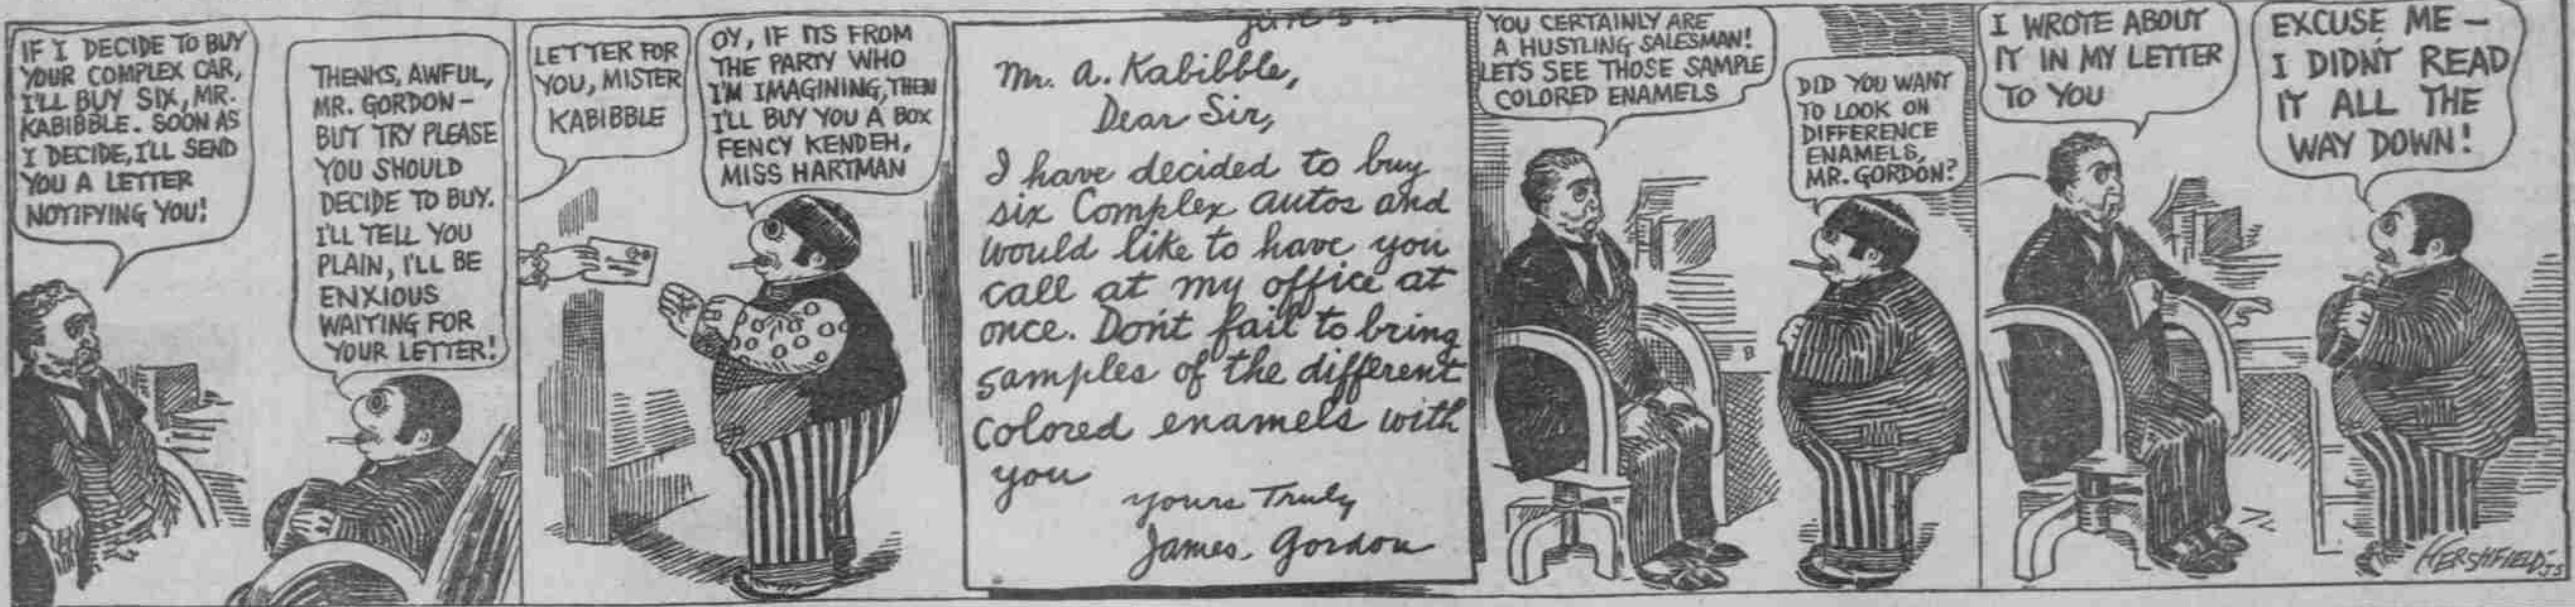 IF I DECIDE TO BUY
YOUR COMPLEX CAR,
I'LL BUY SIX, MR.
KABIBBLE. SOON AS
I DECIDE, I'LL SEND
YOU A LETTER
NOTIFYING YOU!
THENKS, AWFUL,
MR. GORDON –
BUT TRY PLEASE
YOU SHOULD
DECIDE TO BUY.
I'LL TELL YOU
PLAIN, I'LL BE
ENXIOUS
WAITING FOR
YOUR LETTER!
LETTER FOR
YOU, MISTER
KABIBBLE
OY, IF ITS FROM
THE PARTY WHO
I'M IMAGINING, THEN
I'LL BUY YOU A BOX
FENCY KENDEH,
MISS HARTMAN
Mr. A. Kabibble,
Dear Sir,
I have decided to buy
six Complex autos and
would like to have you
call at my office at
once. Don't fail to bring
samples of the different
colored enamels with
you
yours Truly
James Gordon
YOU CERTAINLY ARE
A HUSTLING SALESMAN!
LET'S SEE THOSE SAMPLE
COLORED ENAMELS
DID YOU WANT
TO LOOK ON
DIFFERENCE
ENAMELS,
MR. GORDON?
I WROTE ABOUT
IT IN MY LETTER
TO YOU
EXCUSE ME –
I DIDN'T READ
IT ALL THE
WAY DOWN!
HERSHFIELD